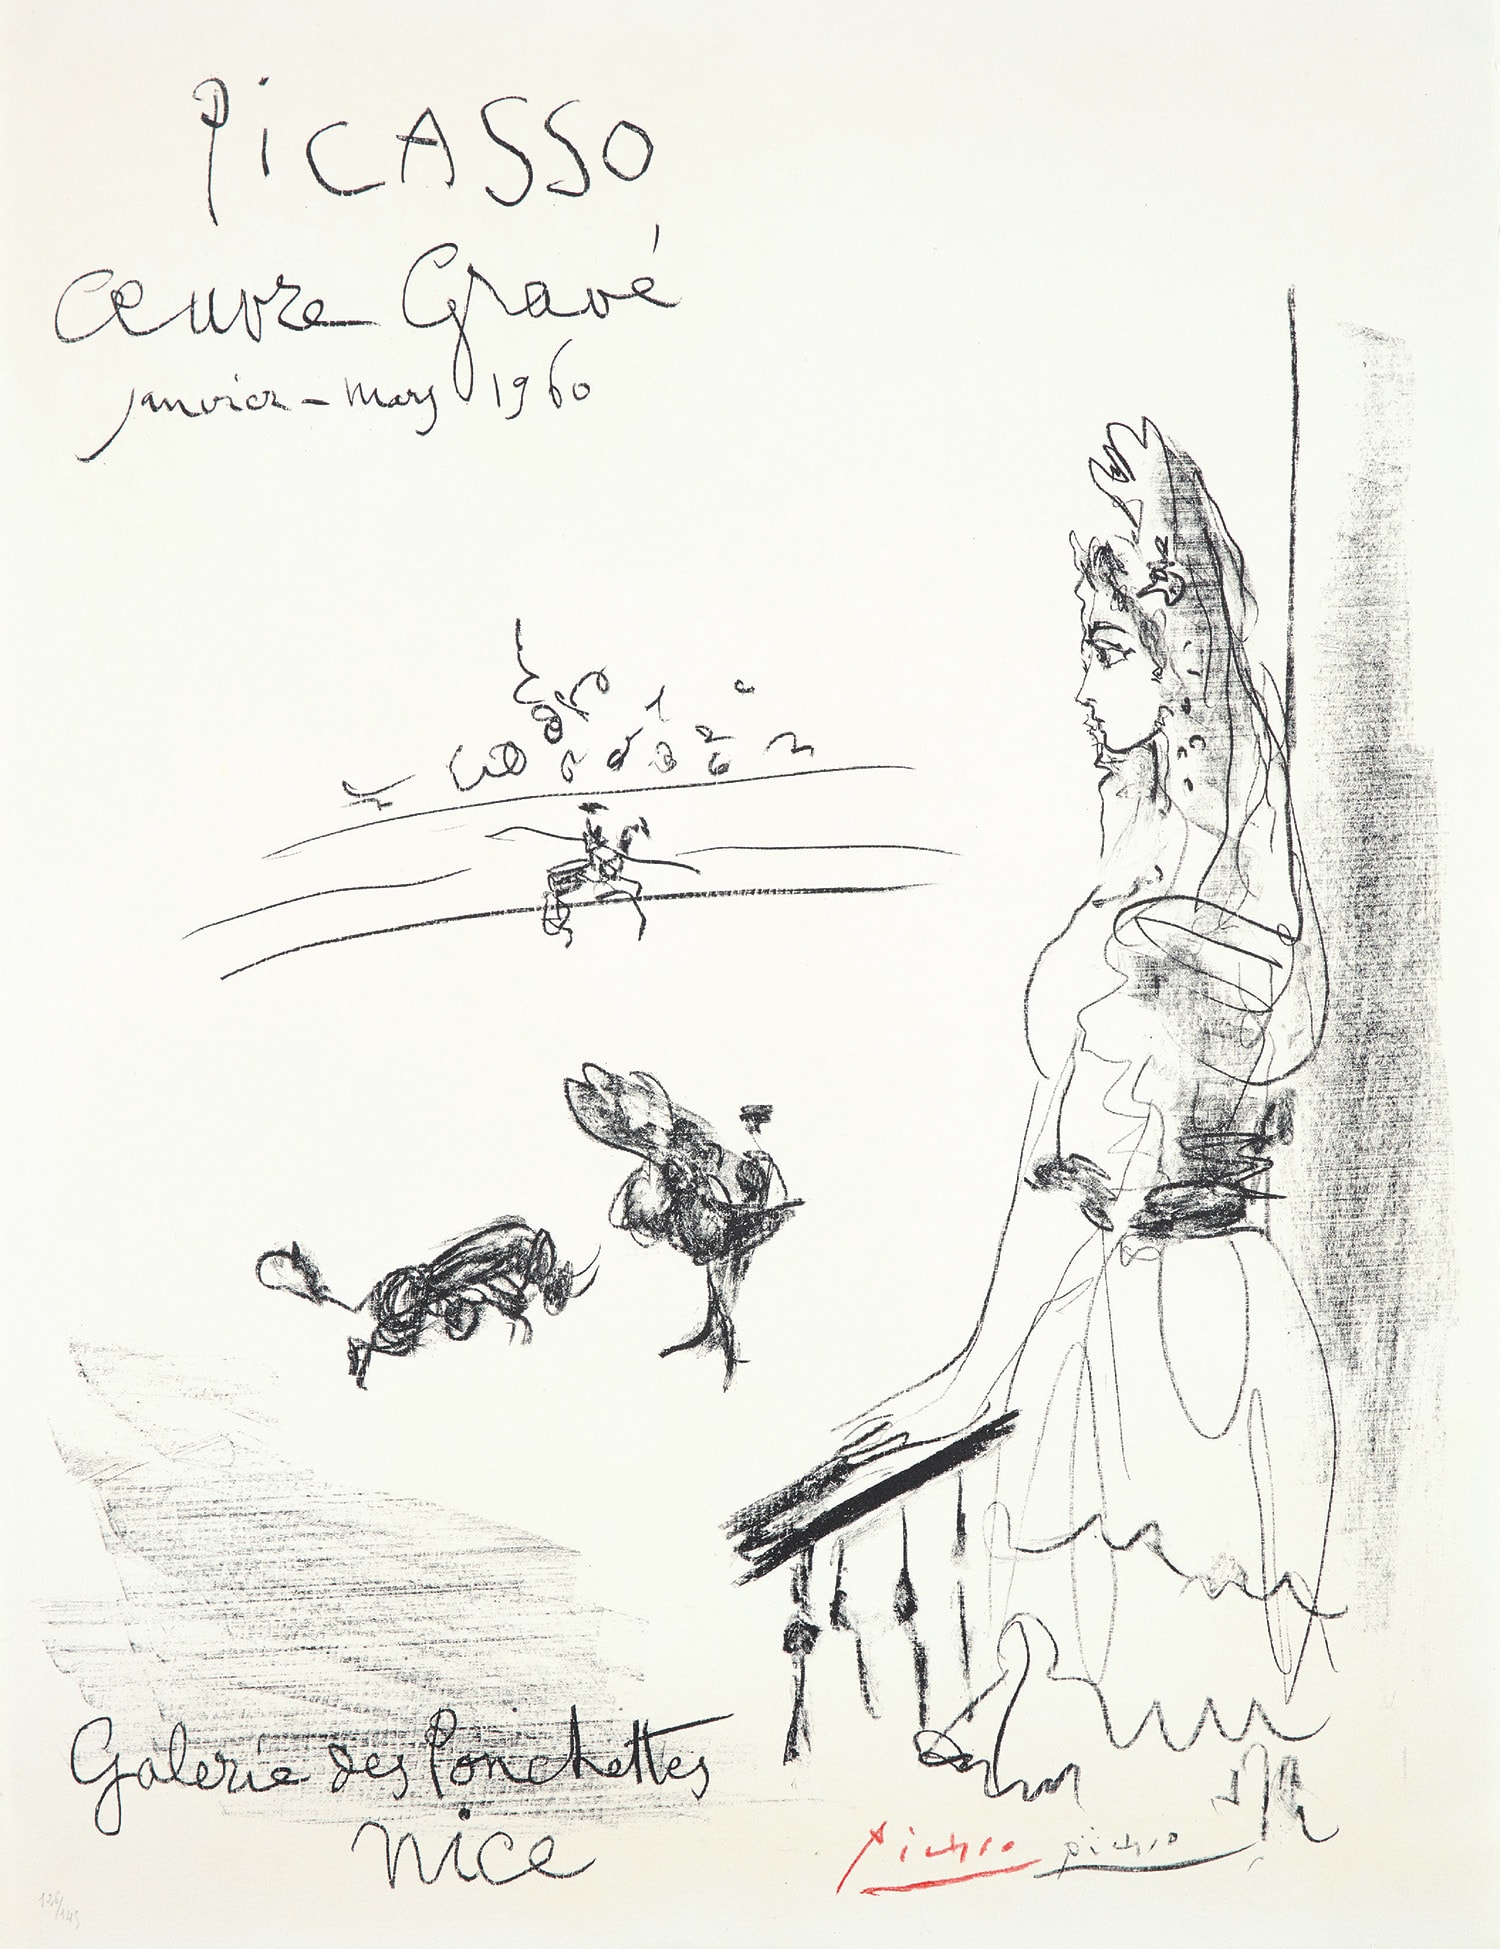 PiCASSO
Œuvre Gravé
janvier - mars 1960
Galerie des Ponchettes
nice
Picasso Picasso
126/145